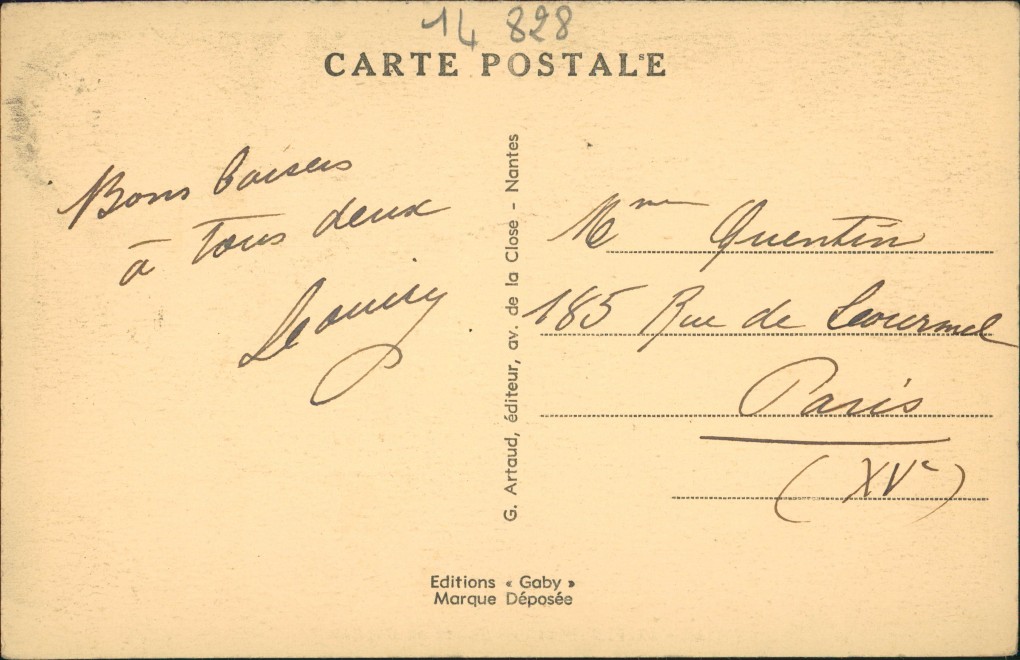 14 828
CARTE POSTALE
Bons baisers
à tous deux
G. Artaud, éditeur, av. de la Close - Nantes
Mme Quentin
185 Rue de Lourmel
Paris
(XVe)
Editions « Gaby »
Marque Déposée